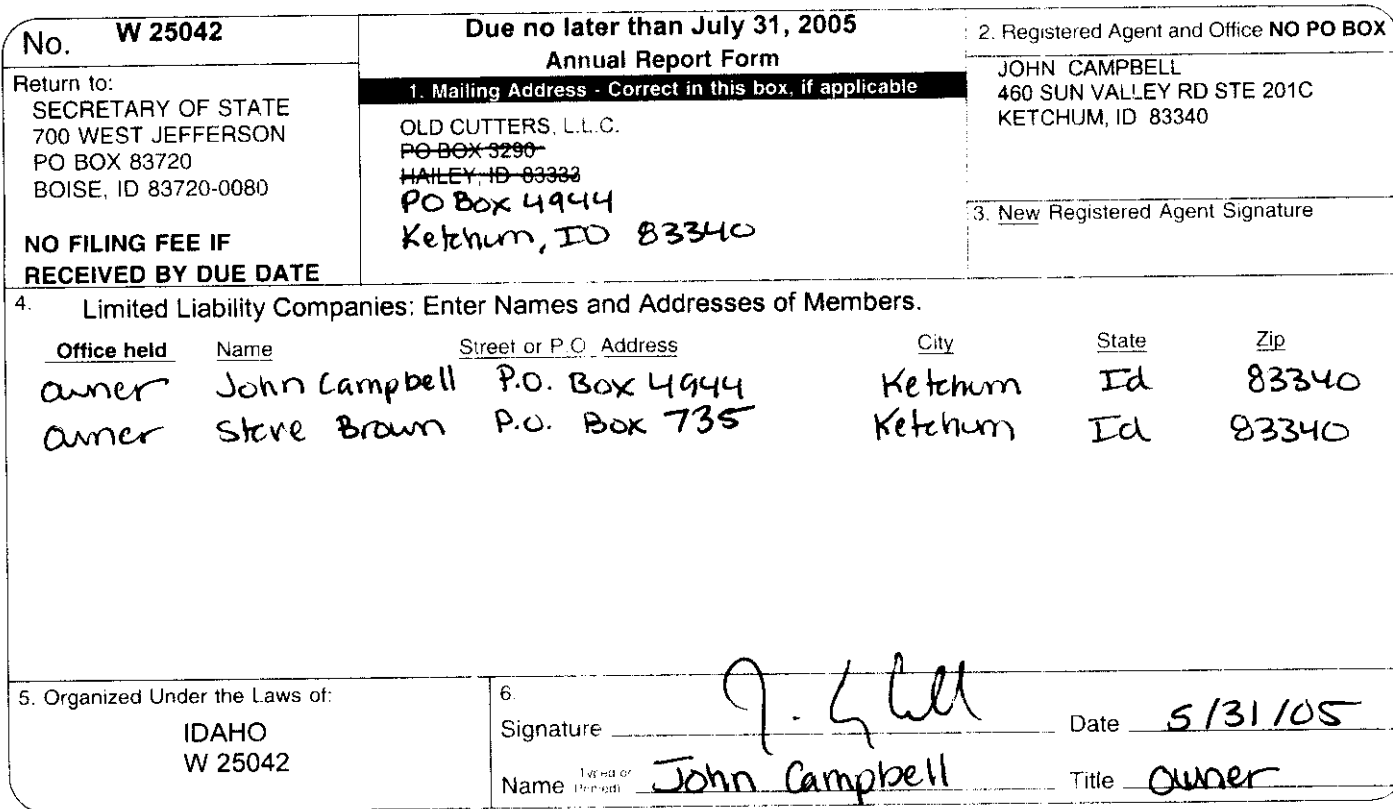 No. W 25042
Return to:
SECRETARY OF STATE
700 WEST JEFFERSON
PO BOX 83720
BOISE, ID 83720-0080
NO FILING FEE IF
RECEIVED BY DUE DATE
Due no later than July 31, 2005
Annual Report Form
1. Mailing Address - Correct in this box, if applicable
OLD CUTTERS, L.L.C.
PO BOX 3290
HAILEY, ID 83333
PO Box 4944
Ketchum, ID 83340
2. Registered Agent and Office NO PO BOX
JOHN CAMPBELL
460 SUN VALLEY RD STE 201C
KETCHUM, ID 83340
3. New Registered Agent Signature
4. Limited Liability Companies: Enter Names and Addresses of Members.
Office held Name Street or P.O. Address City State Zip
owner John Campbell P.O. Box 4944 Ketchum Id 83340
owner Steve Brown P.O. Box 735 Ketchum Id 83340
5. Organized Under the Laws of:
IDAHO
W 25042
6.
Signature Date 5/31/05
Name Typed or Printed John Campbell Title owner